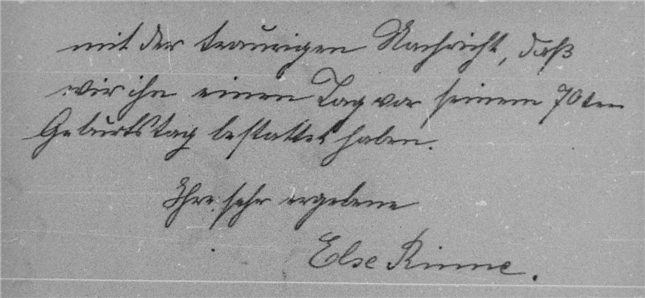 mit der traurigen Nachricht, daß
wir ihn einen Tag vor seinem 70ten
Geburtstag bestattet haben.
Ihre sehr ergebene
Else Rinne.